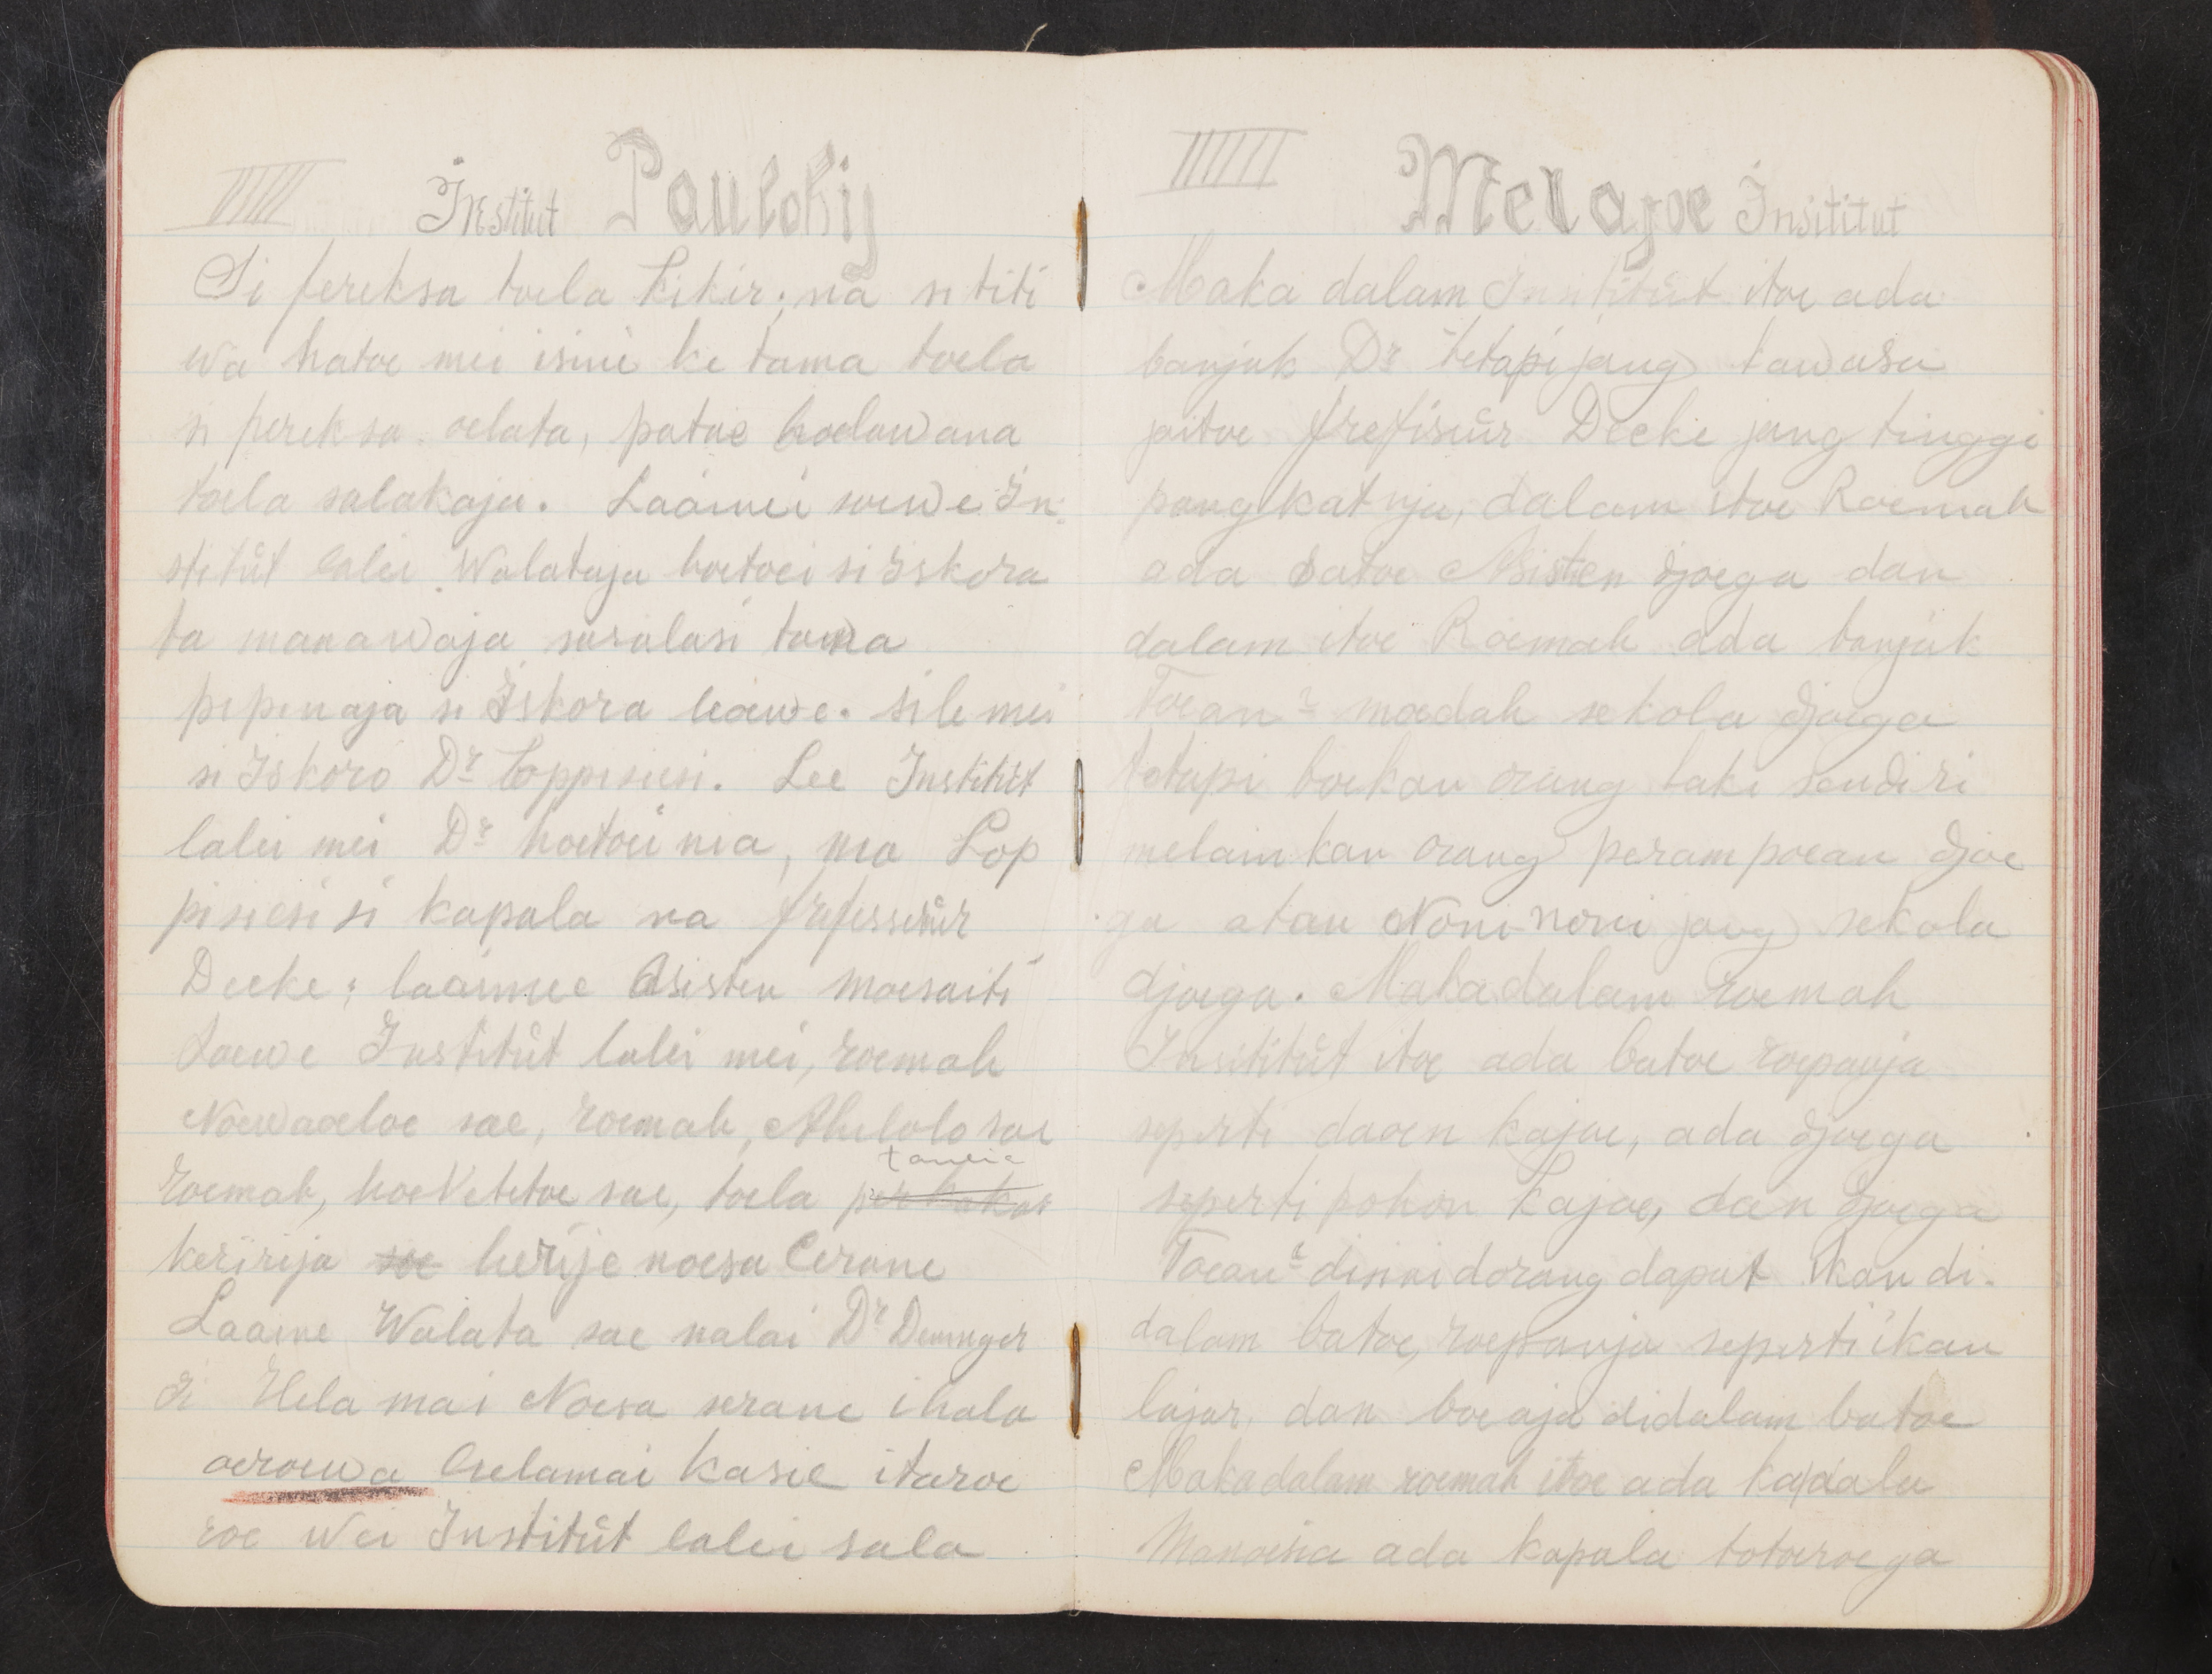 IIIII Institut Paulohij
Si fereksa toela kikir; na si titi
wa hatoe mei isini ke tama toela
si pereksa oelata, patoe hoelawana
toela salakaja. Laamei soewe In-
stitüt lalei Walataja hoetoei si Iskora
ta manawaja sasalasi tama
pepenaja si Iskora leawe. sile mei
si Iskoro Dr Loppisiesi. Lee Institüt
lalei mei Dr hoetoei nia, ma Lop
pisiesi si kapala na frefesseur
Deeke; laamee Asisten moesaiti
soewe Institüt lalei mei, roemah
Noewaoeloe sae, roemah, Ahilolo sae
roemah, hoeketetoe sae, toela
keririja soe herije noesa Cerane
Laame Walata sae nalai Dr Deninger
si Hela mai Noesa serane ihala
oeroewa helamai kasie itaroe
roe wei Institüt lalei sala
IIIIII Melajoe Insititut
Maka dalam Institüt itoe ada
banjak Dr tetapi jang kawasa
jaitoe frefiseür Deeke jang tinggi
pangkatnja, dalam itoe Roemah
ada satoe Asisten djoega dan
dalam itoe Roemah ada banjak
Toean² moedah sekola djoega
tetapi boekan orang laki sendiri
melainkan orang perampoean djoe
ga atau Noni-noni jang sekola
djoega. Maka dalam roemah
Insititüt itoe ada batoe roepanja
seperti daoen kajoe, ada djoega
seperti pohon kajoe, dan djoega
Toean² disini dorang dapat ikan di-
dalam batoe, roepanja seperti ikan
lajar, dan boeaja didalam batoe
Maka dalam roemah itoe ada kapala
Manoesia ada kapala totoeroega